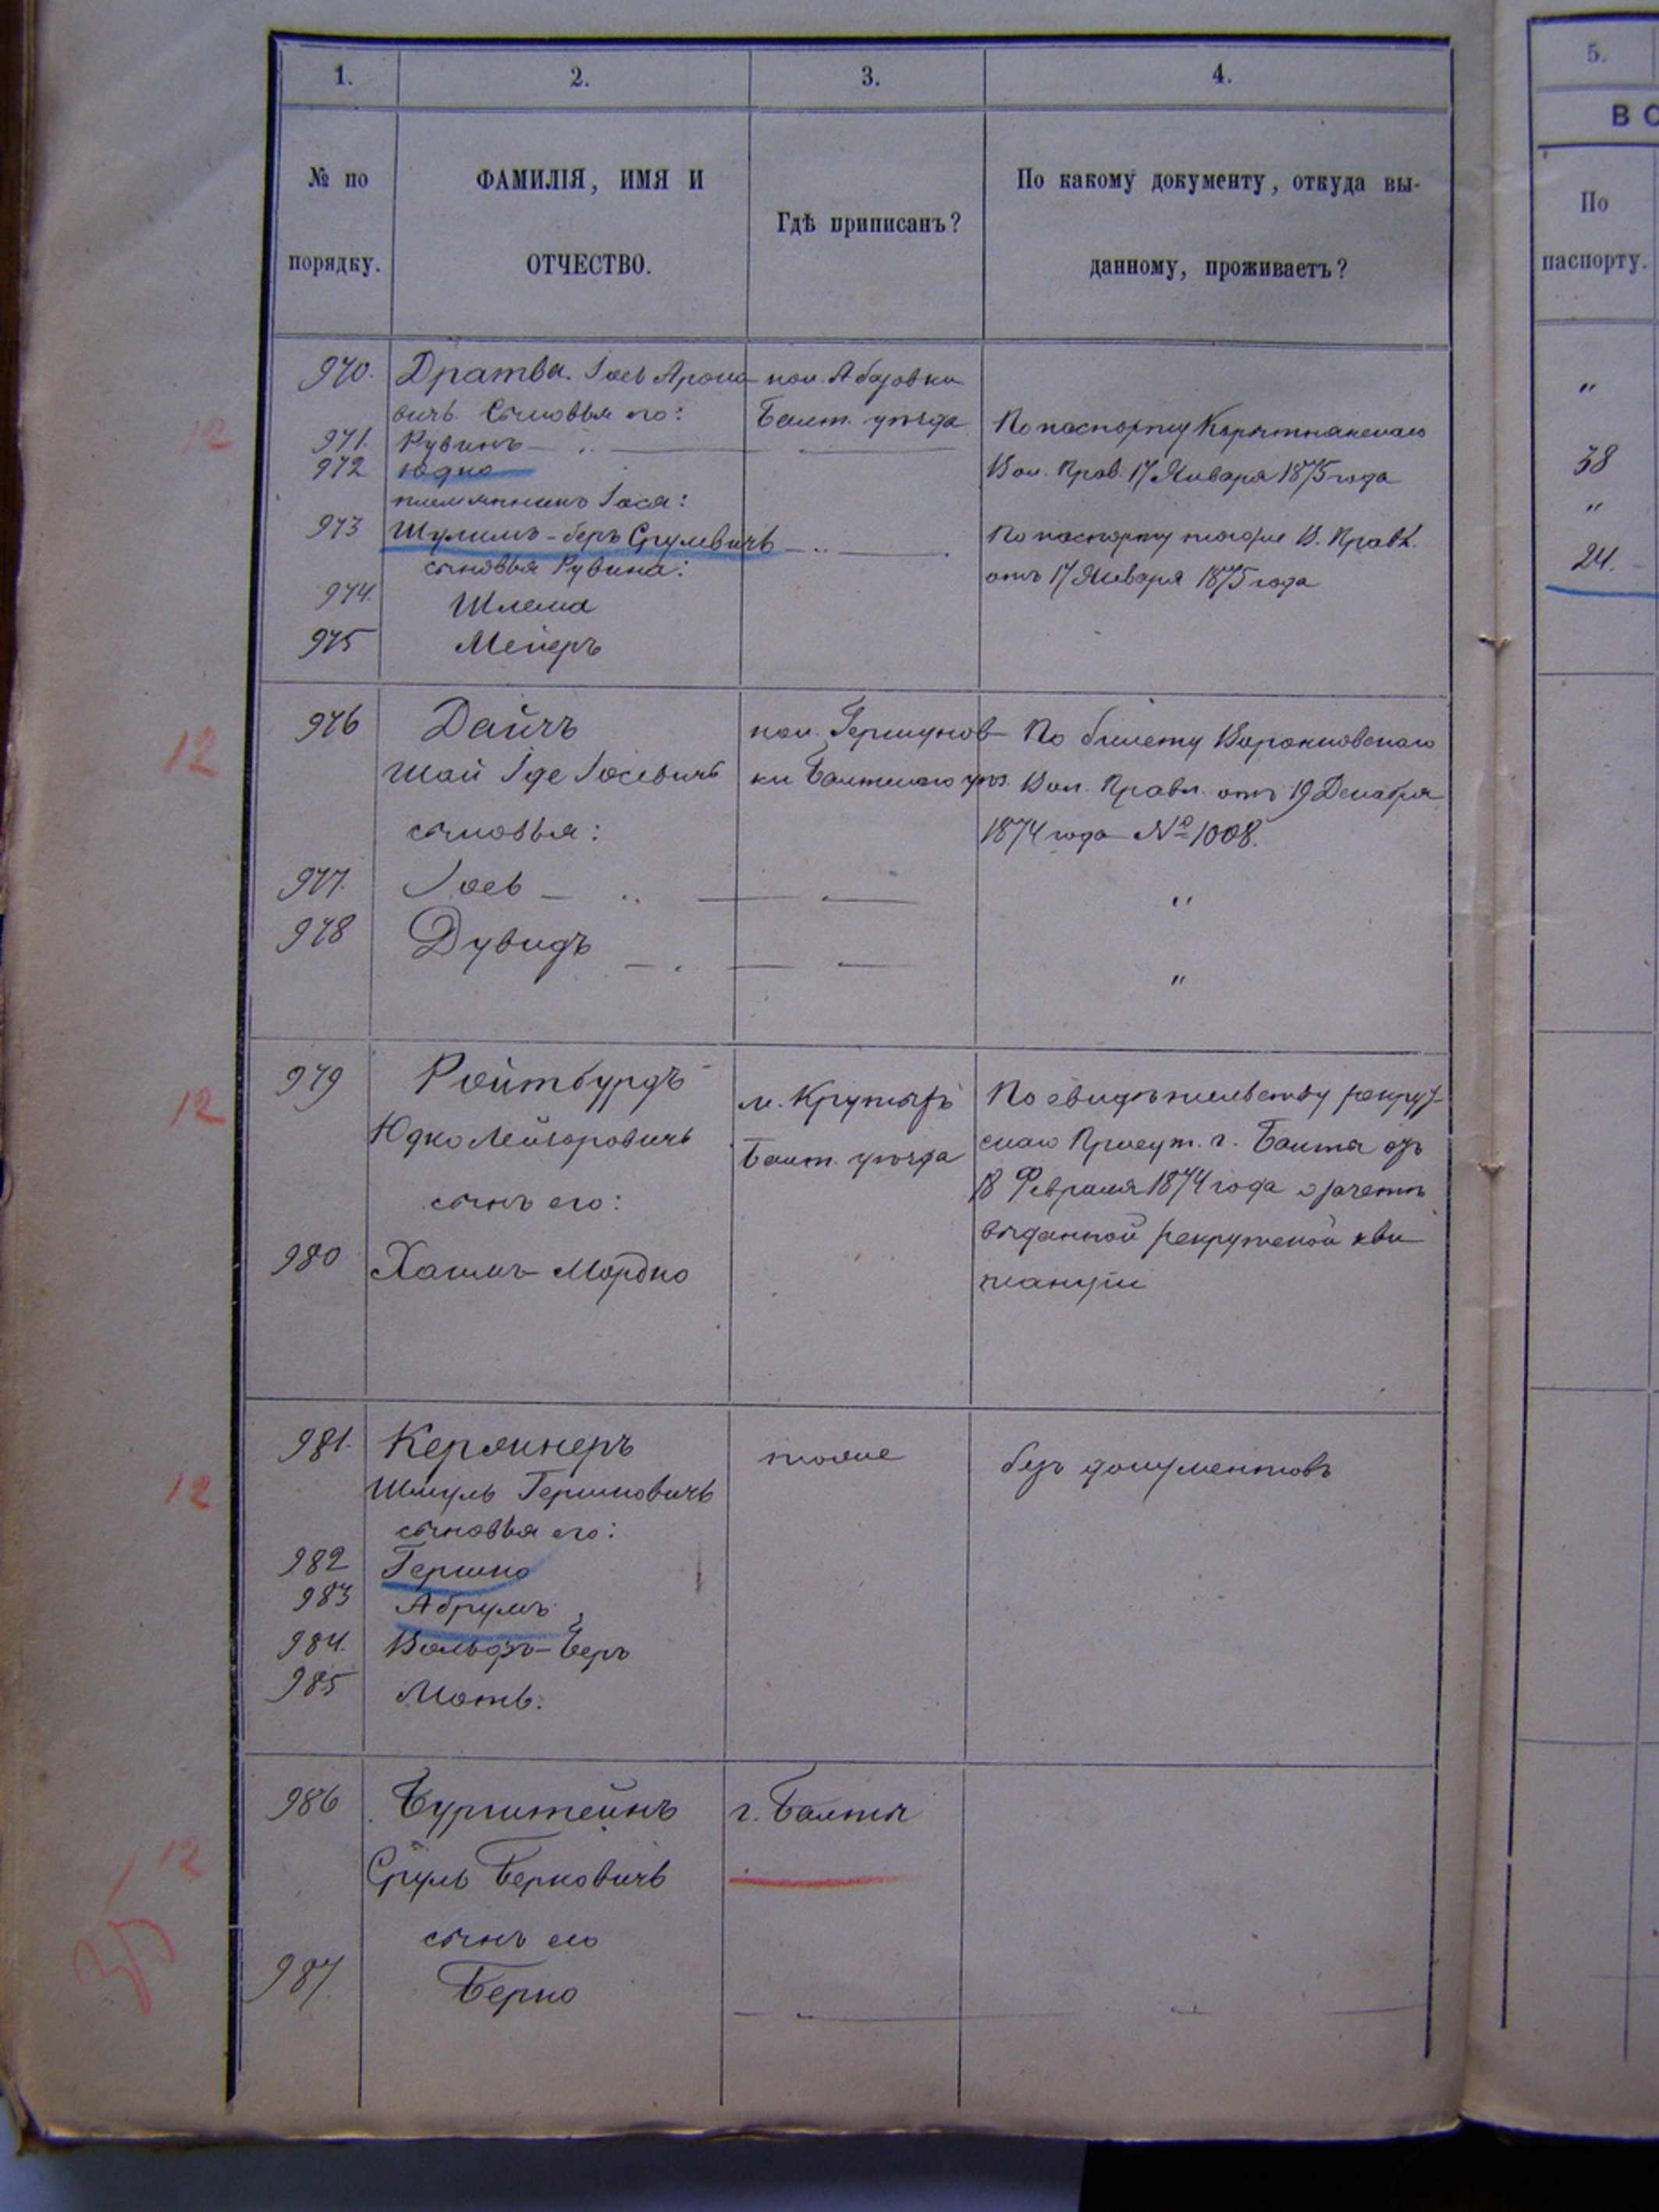 1. 2. 3. 4. 5.
В С
№ по порядку.
ФАМИЛІЯ, ИМЯ И
ОТЧЕСТВО.
Гдѣ приписанъ?
По какому документу, откуда вы-
данному, проживаетъ?
По
паспорту.
970. Дратва Іось Ароно- кол. Абазовки "
вичъ. Сыновья его: Балт. уѣзда По паспорту
12 971. Рувинъ — " — Вол. Прав. 17 Января 1875 года 38
972 Юдко "
племянникъ Іося:
973 Шулимъ-беръ Срулевичъ — " — По паспорту того же В. Правл. 24.
сыновья Рувина: отъ 17 Января 1875 года
974. Шлема
975 Мейеръ
12 976 Дайчъ кол. Гершунов- По билету Воронковскаго
Шай Іде Іосевичъ ки Балтскаго уѣз. Вол. Правл. отъ 19 Декабря
сыновья: 1874 года № 1008.
977. Іось — " — "
978 Дувидъ — " — "
12 979 Ройтбурдъ м. Крутыхъ По свидѣтельству рекрут-
Юдко Лейзоровичъ Балт. уѣзда скаго Присут. г. Балта
сынъ его: 18 Февраля 1874 года о зачетѣ
выданной рекрутской кви
980 Хаимъ-Мордко танціи
981. Керлинеръ тоже безъ документовъ
12 Шмуль Гершковичъ
сыновья его:
982 Гершко
983 Абрумъ
984. Вольфъ-Беръ
985 Моть.
986 Бурштейнъ г. Балты
12 Сруль Берковичъ
35 сынъ его
987. Берко — " — " —